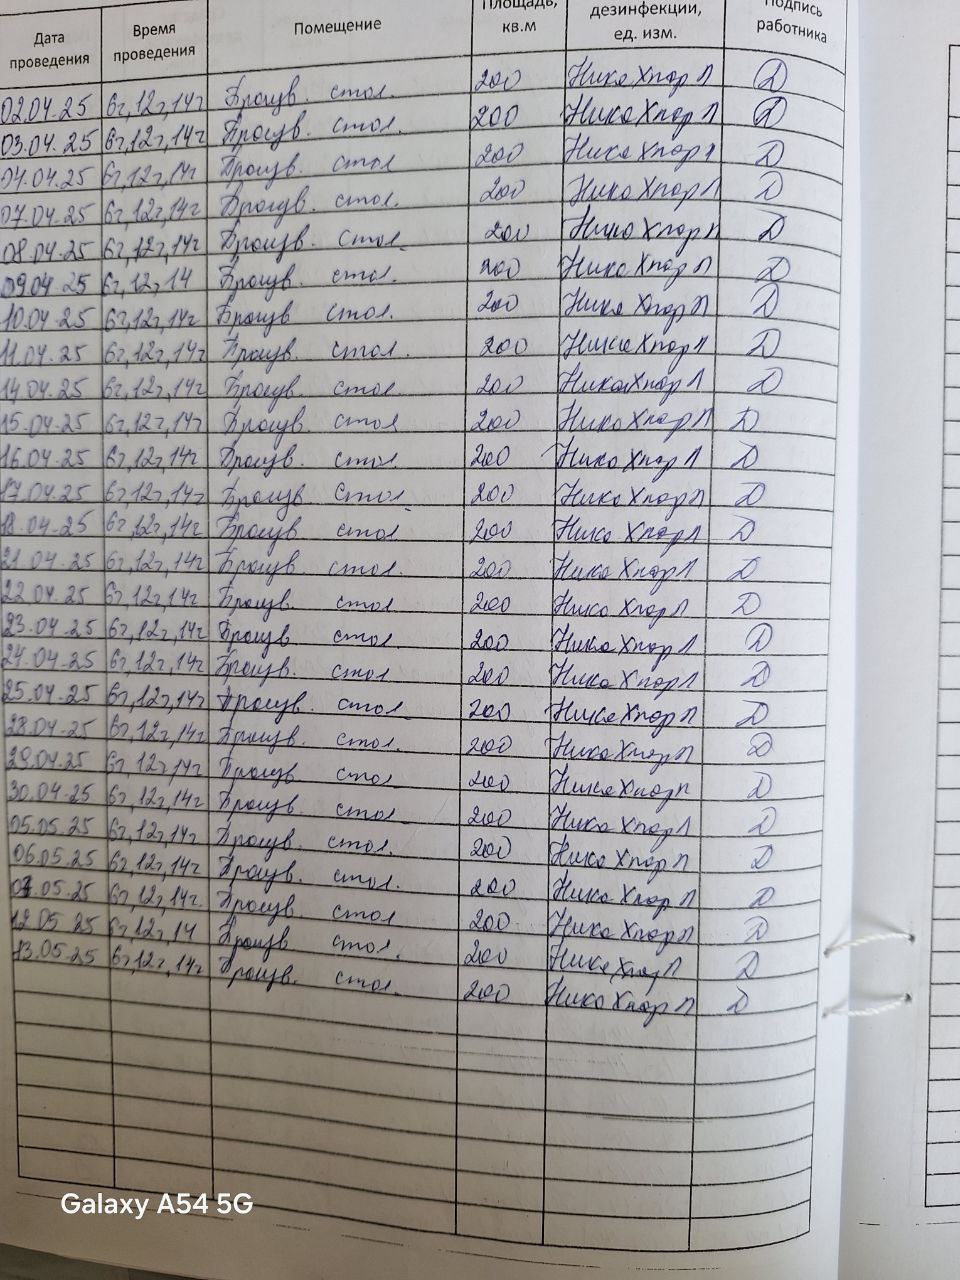 Дата проведения | Время проведения | Помещение | Площадь, кв.м | дезинфекции, ед. изм. | Подпись работника
02.04.25 | 6ч,12ч,14ч | Произв. стол. | 200 | НикаХлор П | Д
03.04.25 | 6ч,12ч,14ч | Произв. стол. | 200 | НикаХлор П | Д
04.04.25 | 6ч,12ч,14ч | Произв. стол | 200 | НикаХлор П | Д
07.04.25 | 6ч,12ч,14ч | Произв. стол. | 200 | НикаХлор П | Д
08.04.25 | 6ч,12ч,14ч | Произв. стол. | 200 | НикаХлор П | Д
09.04.25 | 6ч,12ч,14 | Произв. стол. | 200 | НикаХлор П | Д
10.04.25 | 6ч,12ч,14ч | Произв стол. | 200 | Ника Хлор П | Д
11.04.25 | 6ч,12ч,14ч | Произв. стол. | 200 | НикаХлор П | Д
14.04.25 | 6ч,12ч,14ч | Произв. стол. | 200 | НикаХлор П | Д
15.04.25 | 6ч,12ч,14ч | Произв. стол. | 200 | НикаХлор П | Д
16.04.25 | 6ч,12ч,14ч | Произв. стол. | 200 | Ника Хлор П | Д
17.04.25 | 6ч,12ч,14ч | Произв. стол. | 200 | НикаХлор П | Д
18.04.25 | 6ч,12ч,14ч | Произв. стол. | 200 | Ника Хлор П | Д
21.04.25 | 6ч,12ч,14ч | Произв. стол. | 200 | Ника Хлор П | Д
22.04.25 | 6ч,12ч,14ч | Произв. стол. | 200 | Ника Хлор П | Д
23.04.25 | 6ч,12ч,14ч | Произв. стол. | 200 | Ника Хлор П | Д
24.04.25 | 6ч,12ч,14ч | Произв. стол | 200 | Ника Хлор П | Д
25.04.25 | 6ч,12ч,14ч | Произв. стол. | 200 | НикаХлор П | Д
28.04.25 | 6ч,12ч,14ч | Произв. стол. | 200 | НикаХлор П | Д
29.04.25 | 6ч,12ч,14ч | Произв. стол | 200 | НикаХлор П | Д
30.04.25 | 6ч,12ч,14ч | Произв. стол. | 200 | Ника Хлор П | Д
05.05.25 | 6ч,12ч,14ч | Произв. стол. | 200 | Ника Хлор П | Д
06.05.25 | 6ч,12ч,14ч | Произв. стол. | 200 | Ника Хлор П | Д
07.05.25 | 6ч,12ч,14ч. | Произв. стол | 200 | Ника Хлор П | Д
12.05 25 | 6ч,12ч,14 | Произв. стол. | 200 | Ника Хлор П | Д
13.05.25 | 6ч,12ч,14ч | Произв. стол. | 200 | Ника Хлор П | Д
Galaxy A54 5G